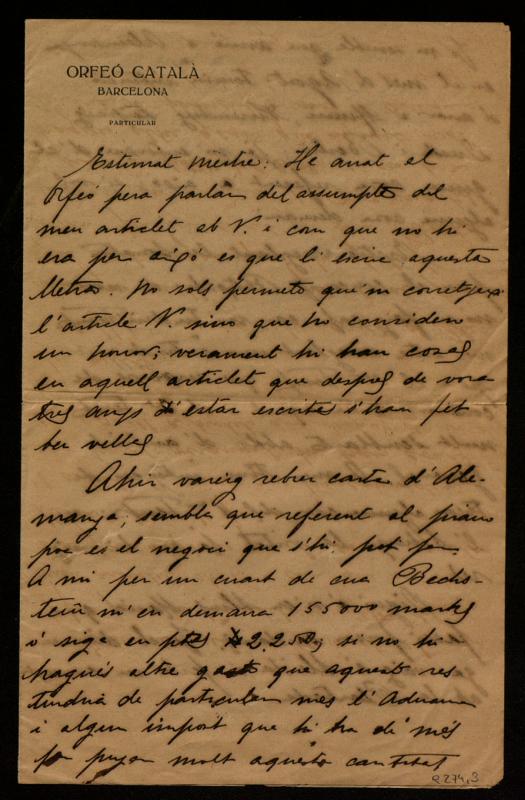 ORFEÓ CATALÀ
BARCELONA
PARTICULAR
Estimat mestre: He anat al
Orfeó pera parlar del assumpte del
meu articlet ab V. i com que no hi
era per aixó es que li escric aquesta
lletra. No sols permeto que'm corretjeixi
l'article V. sino que ho considero
un honor; verament hi han coses
en aquell articlet que despres de vora
tres anys d'estar escrites s'han fet
ben velles
Ahir vareig rebrer carta d'Ale-
manya; sembla que referent al piano
poc es el negoci que s'hi pot fer
A mi per un cuart de cua Bechs-
tein m'en demana 155000 marks
ó siga en ptes 2.250; si no hi
hagués altre gasto que aquest res
tindria de particular mes l'Aduana
i algun import que hi ha de més
fa pujar molt aquesta cantitat
R 274,3